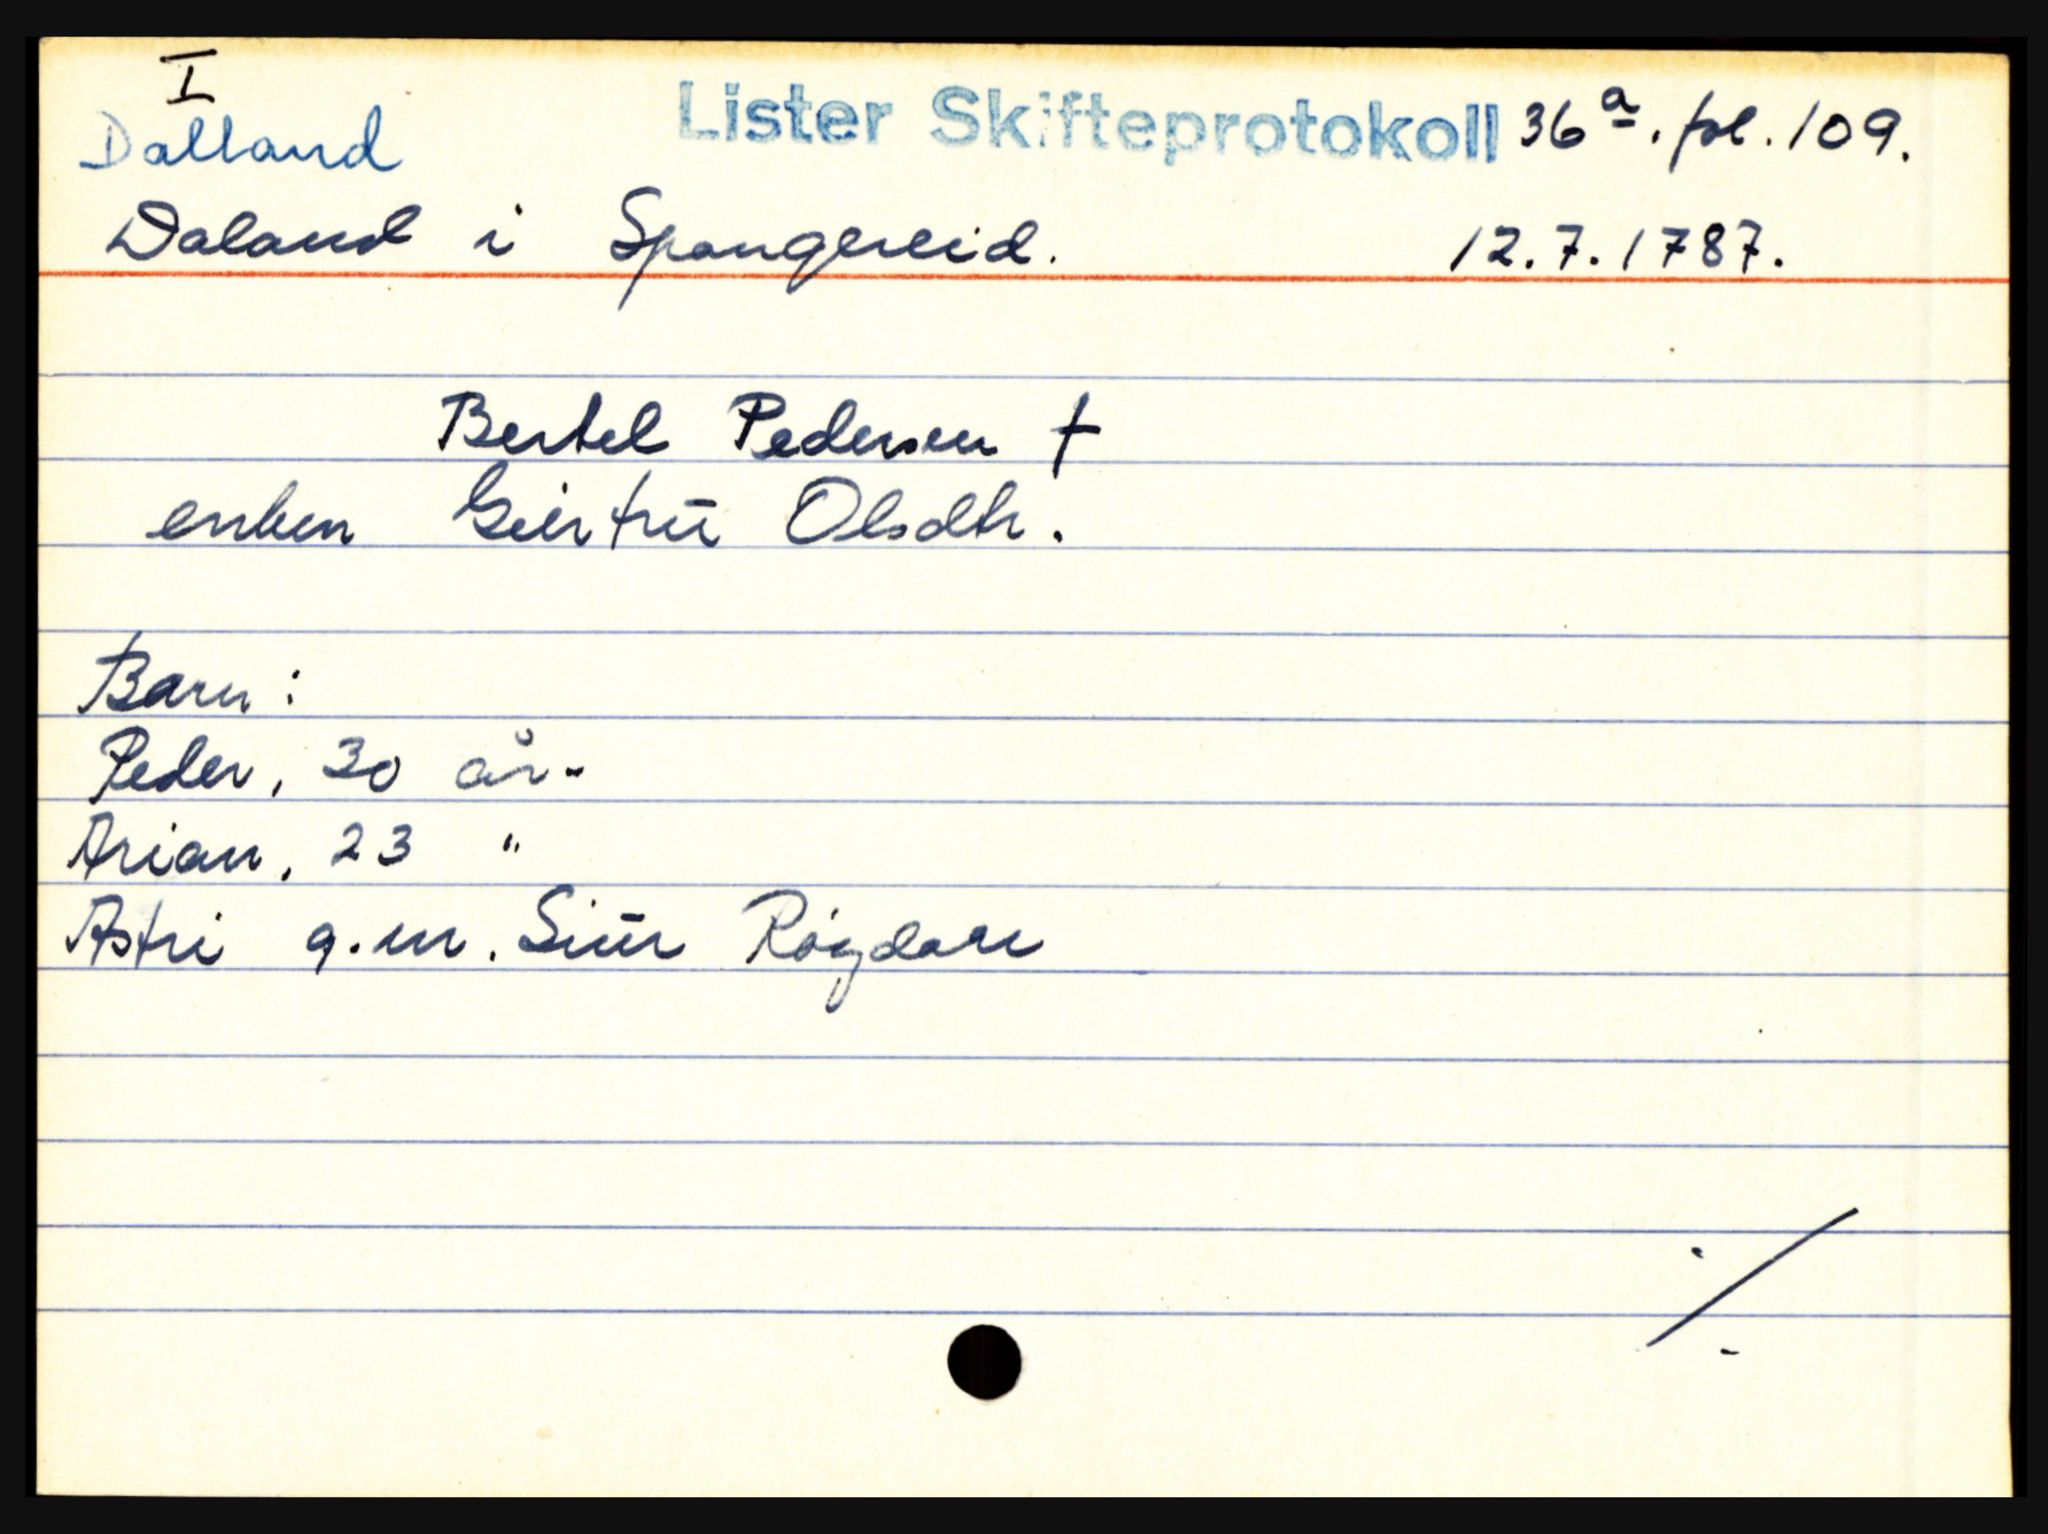 I
Dalland Lister Skifteprotokoll 36a. fol. 109.
Daland i Spangereid. 12.7.1787.
Bertel Pedersen †
enken Giertrū Olsdtr.
Barn:
Peder, 30 år.
Arian, 23 "
Astri g.m. Siūr Röydare
·/·